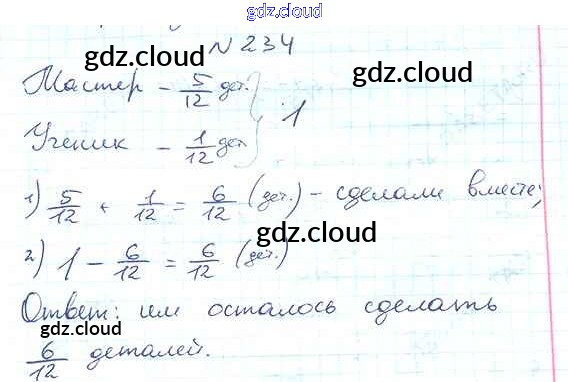 gdz.cloud
N 234
gdz.cloud gdz.cloud
Мастер - 5/12 дет. } 1
Ученик - 1/12 дет
gdz.cloud
1) 5/12 + 1/12 = 6/12 (дет.) - сделали вместе;
gdz.cloud
2) 1 - 6/12 = 6/12 (дет.)
Ответ: им осталось сделать
gdz.cloud gdz.cloud
6/12 деталей.